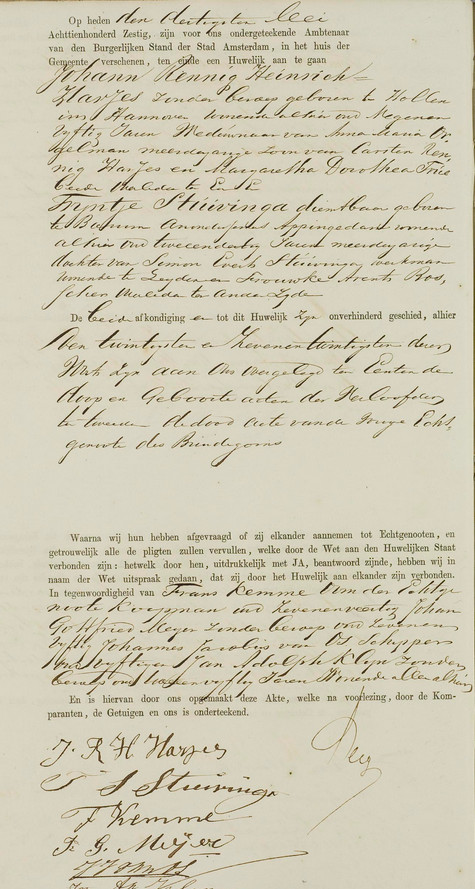 Op heden den dertigsten Mei
Achttienhonderd Zestig, zijn voor ons ondergeteekende Ambtenaar
van den Burgerlijken Stand der Stad Amsterdam, in het huis der
Gemeente verschenen, ten einde een Huwelijk aan te gaan
Johann Rennig Heinrich
Harjes zonder beroep geboren te Hollen
in Hannover wonende alhier oud Negenen
vyftig Jaren Weduwnaar van Anna Maria
meerderjarige zoon van Carsten Ren
nig Harjes en Margaretha Dorothea
beide overleden En
Tryntje Stuivinga dienstbaar geboren
te Appingedam wonende
alhier oud tweeendertig Jaren meerderjarige
dochter van Simon Everts Stuivinga werkman
wonende te en Frouwke Arents Bos,
overleden ter andere Zyde
De beide afkondigingen tot dit Huwelijk zyn onverhinderd geschied, alhier
Den twintigsten en Zevenentwintigsten dezer
zyn aan Ons overgelegd ten Eersten de
doop en Geboorte acten der Verloofden
ten tweeden de dood acte van de vorige Echt-
genoote des Bruidegoms
Waarna wij hun hebben afgevraagd of zij elkander aannemen tot Echtgenooten, en
getrouwelijk alle de pligten zullen vervullen, welke door de Wet aan den Huwelijken Staat
verbonden zijn: hetwelk door hen, uitdrukkelijk met JA, beantwoord zijnde, hebben wij in
naam der Wet uitspraak gedaan, dat zij door het Huwelijk aan elkander zijn verbonden.
In tegenwoordigheid van Frans Kemme Oom der Echtge
noote Koopman oud Zevenenveertig Johan
Gottfried Meyer zonder beroep oud Zevenen
vyftig Johannes Jacobus van Os, Schipper
oud vyftig en Jan Adolph Klyn zonder
beroep oud vyftig Jaren Wonende allen alhier
En is hiervan door ons opgemaakt deze Akte, welke na voorlezing, door de Kom-
paranten, de Getuigen en ons is onderteekend.
J. R. H. Harjes
T S Stuivinga
F Kemme
J. G. Meyer